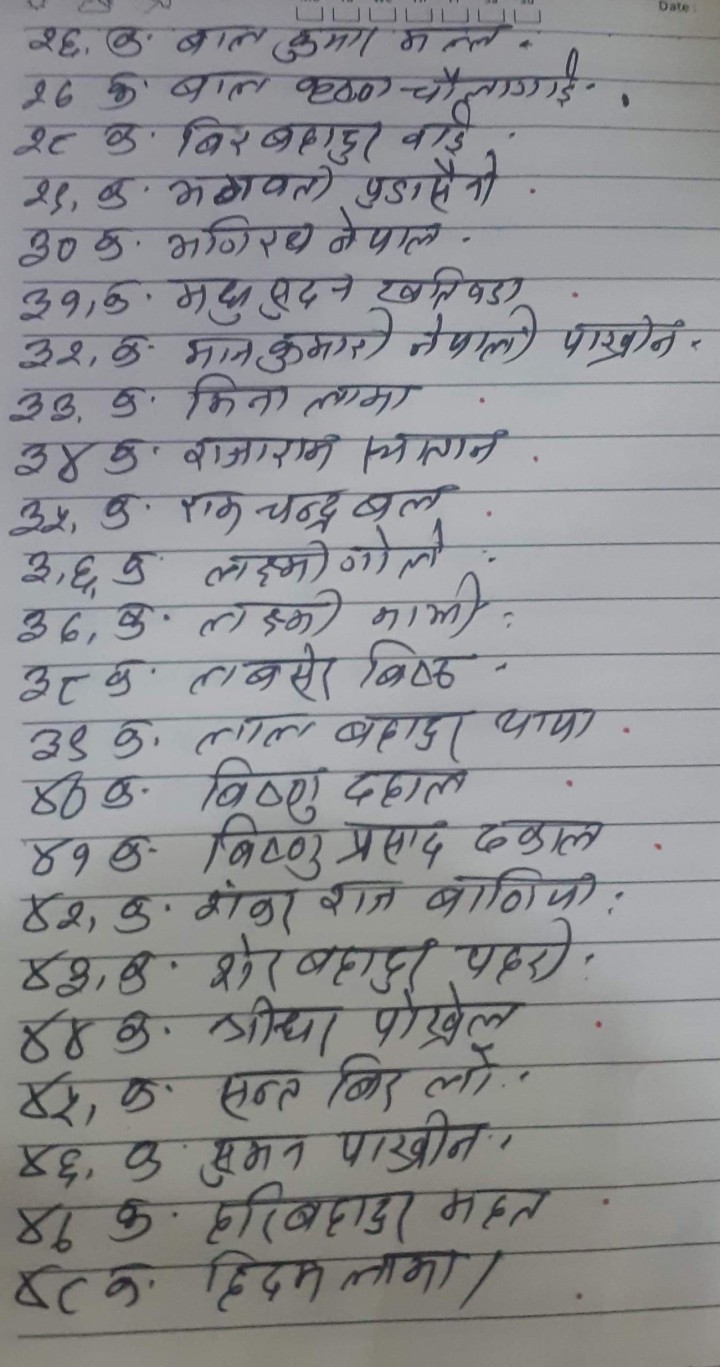 Date:
२६, क. बाल कुमार मल्ल .
२७ क. बाल कृष्ण चौलागाई .
२८ क. बिर बहादुर
२९, क. भगवती पुडासैनी .
३० क. भगिरथ नेपाल .
३१, क. मधुसुदन खतिवडा .
३२, क. मानकुमारी नेपाली पाख्रीन .
३३, क. मिना लामा .
३४ क. राजाराम स्यातान .
३५, क. राम चन्द्र बल .
३,६, क. लक्ष्मी गोले .
३७, क. लक्ष्मी माली .
३८ क. लबसेर बिष्ट .
३९ क. लाल बहादुर थापा .
४० क. बिष्णु दहाल .
४१ क. बिष्णु प्रसाद ढकाल .
४२, क. शंकर राज बानिया .
४३, क. शेर बहादुर पहरी .
४४ क. श्रीधर पोख्रेल .
४५, क. सन्त बिर लो .
४६, क. सुमन पाख्रीन .
४७ क. हरिबहादुर महत .
४८ क. हिदम लामा /